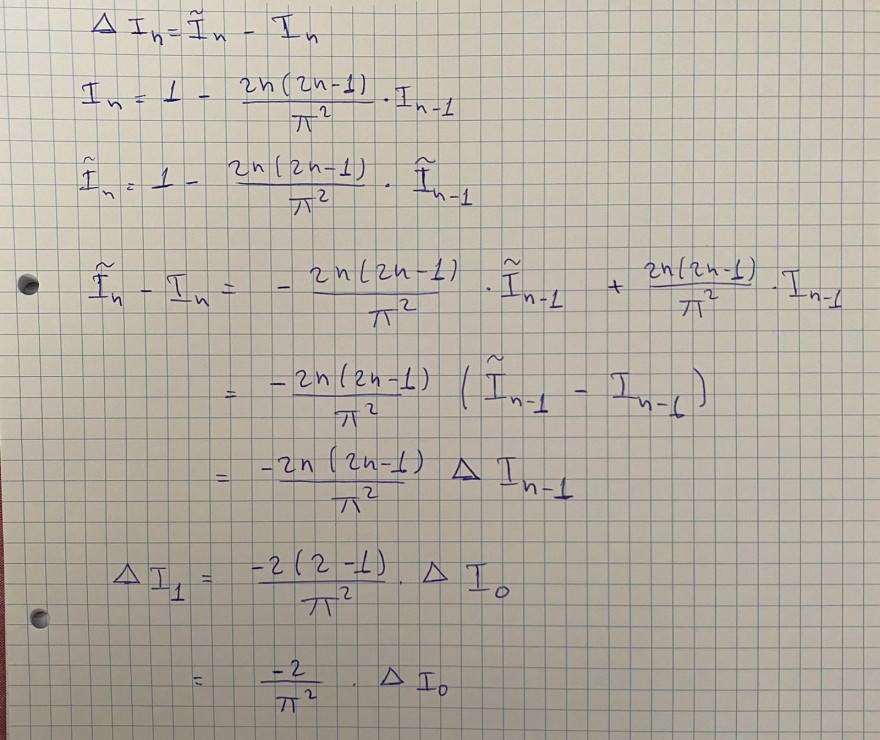 Δ Iₙ = Ĩₙ - Iₙ
Iₙ = 1 - 2n(2n-1)/π² · Iₙ₋₁
Ĩₙ = 1 - 2n(2n-1)/π² · Ĩₙ₋₁
Ĩₙ - Iₙ = - 2n(2n-1)/π² · Ĩₙ₋₁ + 2n(2n-1)/π² · Iₙ₋₁
= -2n(2n-1)/π² (Ĩₙ₋₁ - Iₙ₋₁)
= -2n(2n-1)/π² Δ Iₙ₋₁
Δ I₁ = -2(2-1)/π² · Δ I₀
= -2/π² · Δ I₀